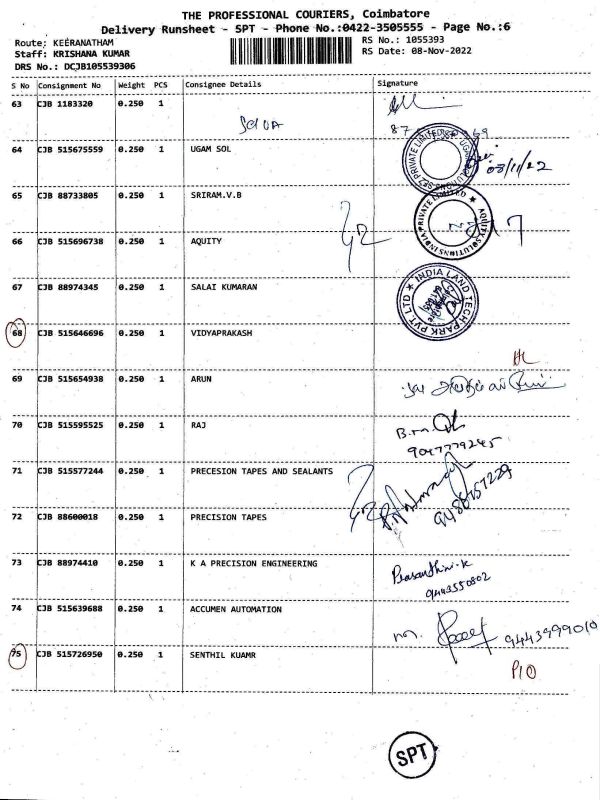 THE PROFESSIONAL COURIERS, Coimbatore
Delivery Runsheet - SPT - Phone No.:0422-3505555 - Page No.:6
Route: KEERANATHAM
RS No.: 1055393
Staff: KRISHANA KUMAR
RS Date: 08-Nov-2022
DRS No.: DCJB105539306
S No Consignment No Weight PCS Consignee Details Signature
63 CJB 1183320 0.250 1
64 CJB 515675559 0.250 1 UGAM SOL
08/11/22
65 CJB 88733805 0.250 1 SRIRAM.V.B
66 CJB 515696738 0.250 1 AQUITY
AQUITY SOLUTIONS INDIA PRIVATE LIMITED
67 CJB 88974345 0.250 1 SALAI KUMARAN
INDIA LAND TECH PARK PVT LTD
68 CJB 515646696 0.250 1 VIDYAPRAKASH
69 CJB 515654938 0.250 1 ARUN
70 CJB 515595525 0.250 1 RAJ
9047779245
71 CJB 515577244 0.250 1 PRECESION TAPES AND SEALANTS
72 CJB 88600018 0.250 1 PRECISION TAPES
73 CJB 88974410 0.250 1 K A PRECISION ENGINEERING
9443550802
74 CJB 515639688 0.250 1 ACCUMEN AUTOMATION
9443999010
75 CJB 515726950 0.250 1 SENTHIL KUAMR
P10
SPT